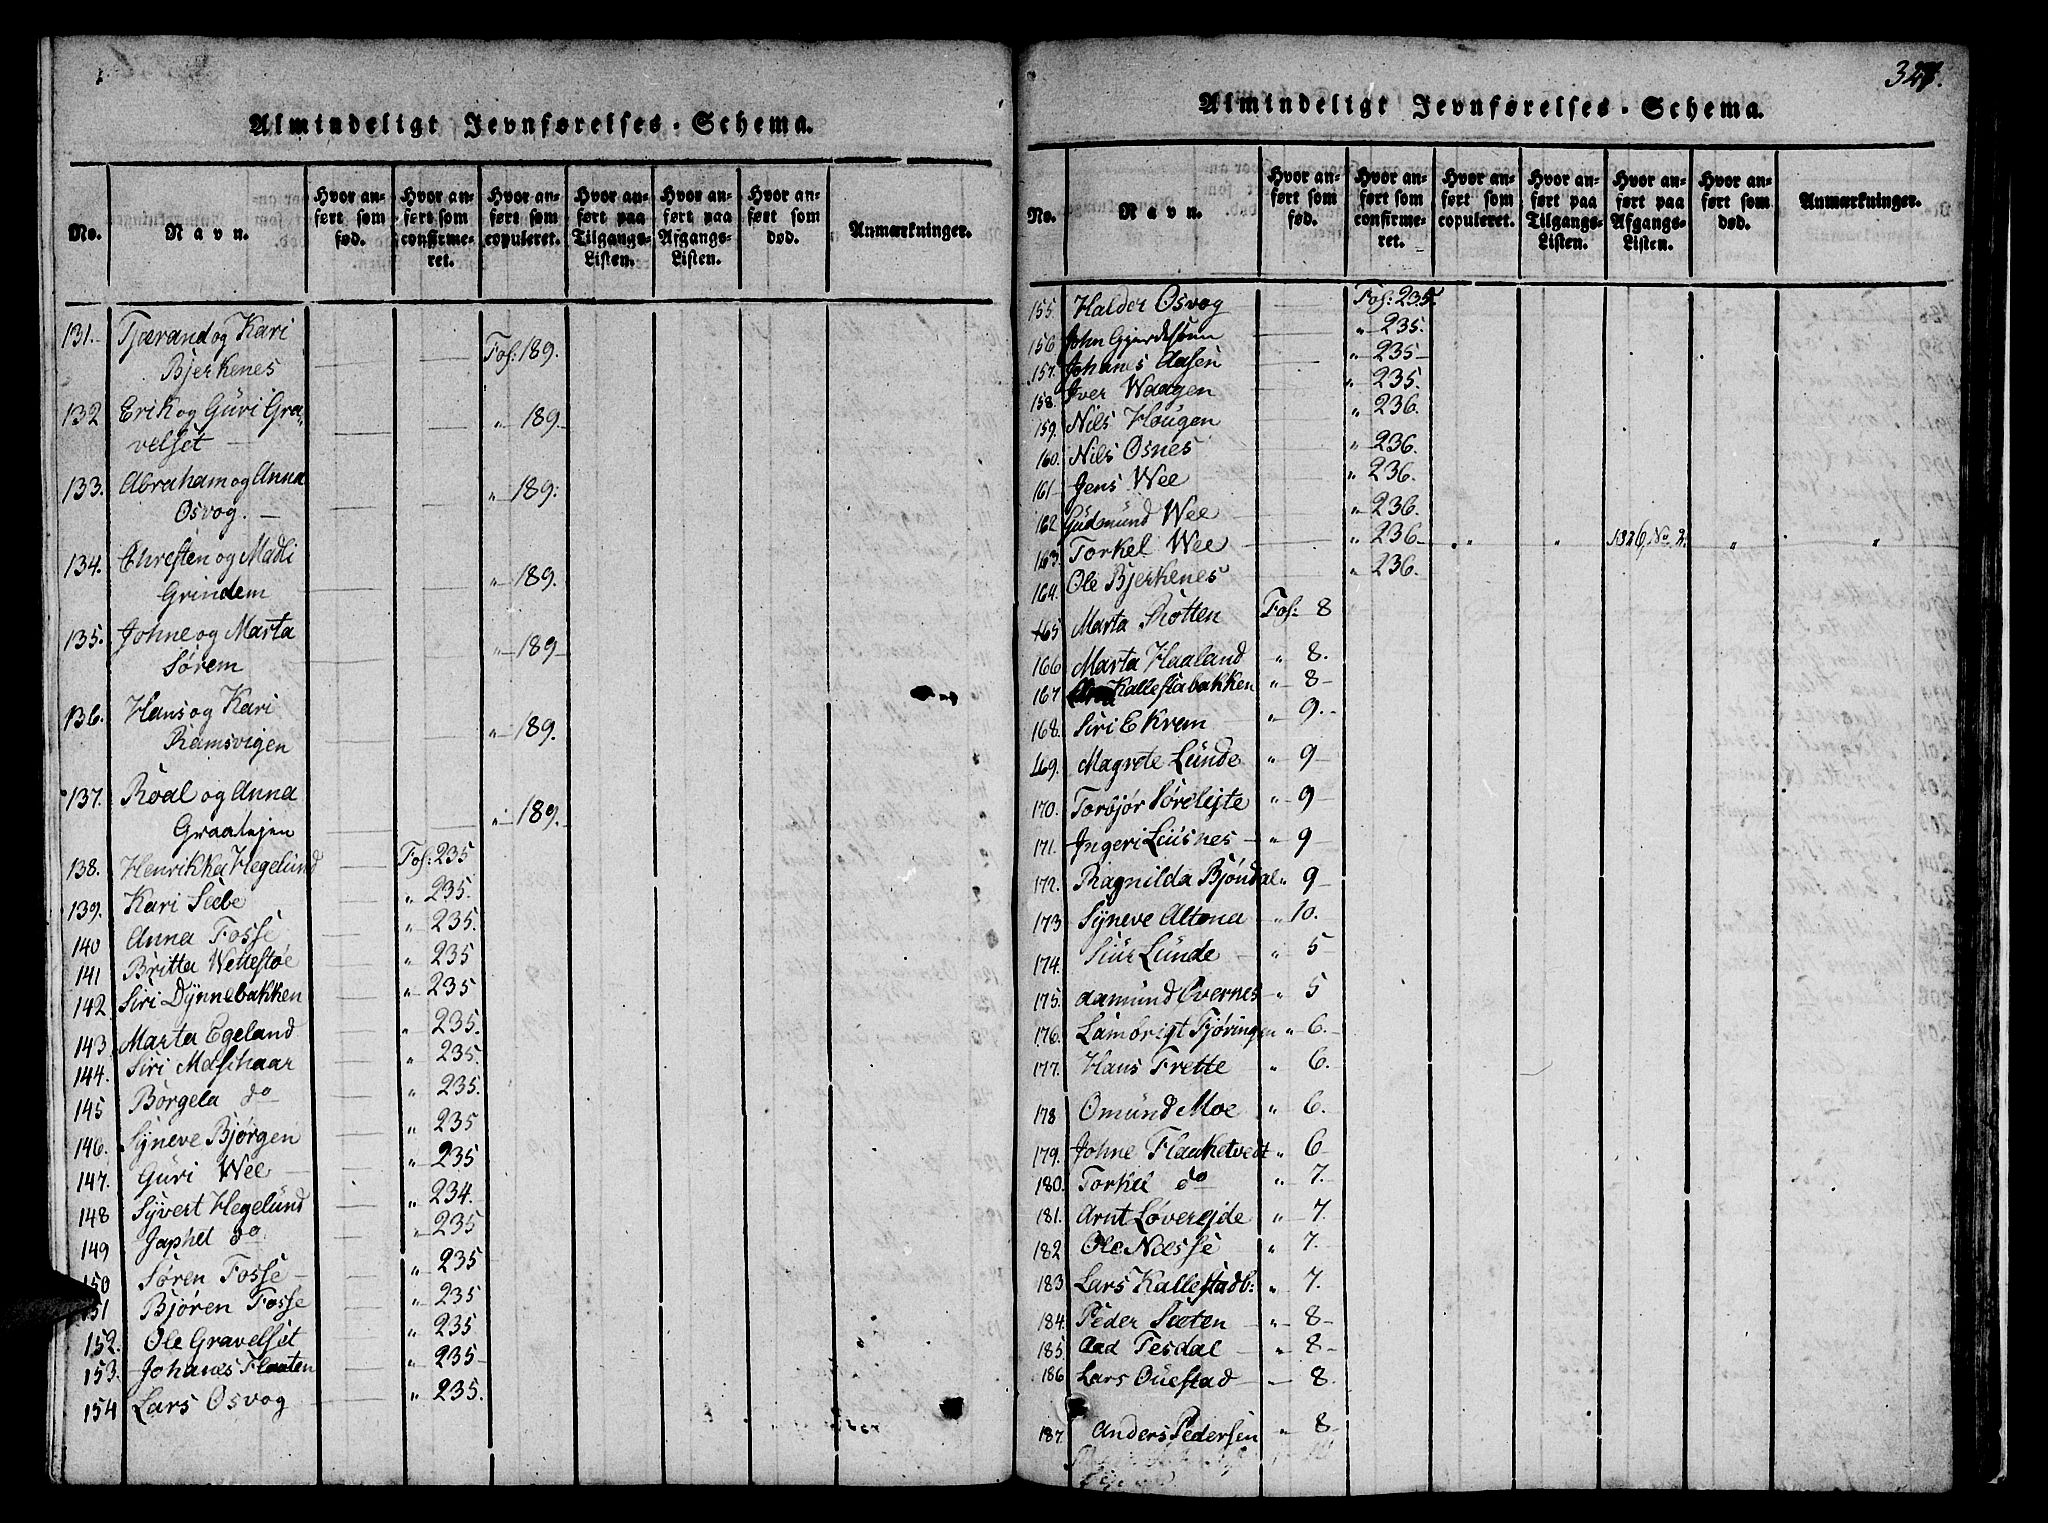 Almindeligt Jevnførelses-Schema.
No.
Navn.
Hvor anført som fød.
Hvor anført som confirmeret.
Hvor anført som copuleret.
Hvor anført paa Tilgangs-Listen.
Hvor anført paa Afgangs-Listen.
Hvor anført som død.
Anmærkninger.
131. Tjærand og Kari
Bjerkenes Fol: 189.
132 Erik og Guri Gra„
velset „ 189
133. Abraham og Anna
Osvog. „ 189:
134. Chresten og Madli
Grindem „ 189.
135. Johne og Marta
Sørem „ 189
136. Hans og Kari
Ramsvigen „ 189.
137. Roal og Anna
Graatejen „ 189.
138. Henrikka Hegelund Fol: 235
139. Kari Sæbe „ 235.
140 Anna Fosse „ 235.
141 Britta Wettestøe „ 235
142. Siri Dynnebakken „ 235
143. Marta Egeland „ 235.
144. Siri Maschaar „ 235.
145 Borgela do „ 235.
146. Syneve Bjørgen „ 235
147. Guri Wee „ 235
148 Syvert Hegelund „ 234.
149 Japhet do. „ 235
150 Søren Fosse „ 235
151 Bjøren Fosse „ 235
152. Ole Gravelset „ 235
153. Johanes Flaaten „ 235
154 Lars Osvog „ 235.
327.
Almindeligt Jevnførelses-Schema.
No.
Navn.
Hvor anført som fød.
Hvor anført som confirmeret.
Hvor anført som copuleret.
Hvor anført paa Tilgangs-Listen.
Hvor anført paa Afgangs-Listen.
Hvor anført som død.
Anmærkninger.
155 Halder Osvog Fol: 235.
156 John Gjerdesøen „ 235.
157. Johanes Aasen „ 235
158. Iver Waagen „ 235.
159. Nils Haugen „ 236.
160. Nils Osnes „ 236.
161 Jens Wee „ 236.
162 Gudmund Wee „ 236.
163. Torkel Wee „ 236 „ „ 1826, No 2. „ „
164. Ole Bjerkenes „ 236.
165 Marta Skotten Fol: 8
166 Marta Haaland „ 8.
167 Kallestabakken „ 8
168. Siri Ekrem „ 9.
169. Magrete Lunde „ 9
170. Torbjør Sørelejte „ 9
171. Ingeri Leusnes „ 9
172. Ragnilda Bjøndal „ 9
173 Syneve Altona „ 10.
174. Siur Lunde „ 5
175. Aamund Øvernes „ 5
176. Lambrigt Tjøringen „ 6.
177. Hans Frette „ 6.
178 Omund Moe „ 6.
179. Johne Flaketvedt „ 6
180. Torkel do „ 7.
181. Arnt Løverejde „ 7.
182 Ole Næsse „ 7.
183 Lars Kallestadb: „ 7.
184. Peder Sæten „ 8
185. Aad Tesdal „ 8
186 Lars Ouestad 8.
187. Anders Pedersen „ 8